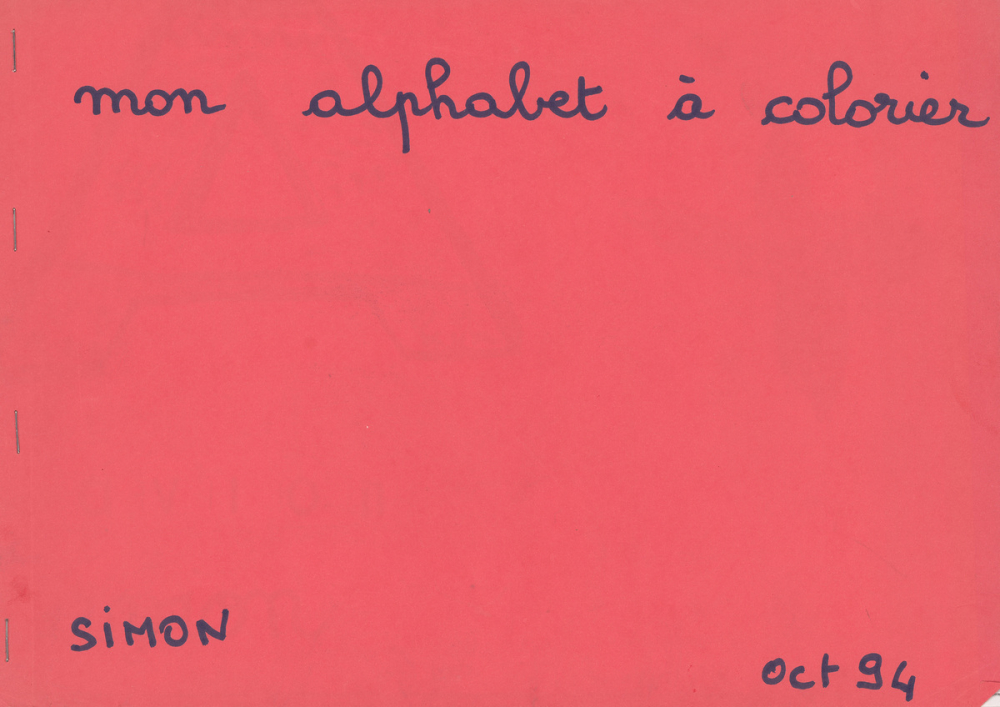 mon alphabet à colorier
SiMON
oct 94